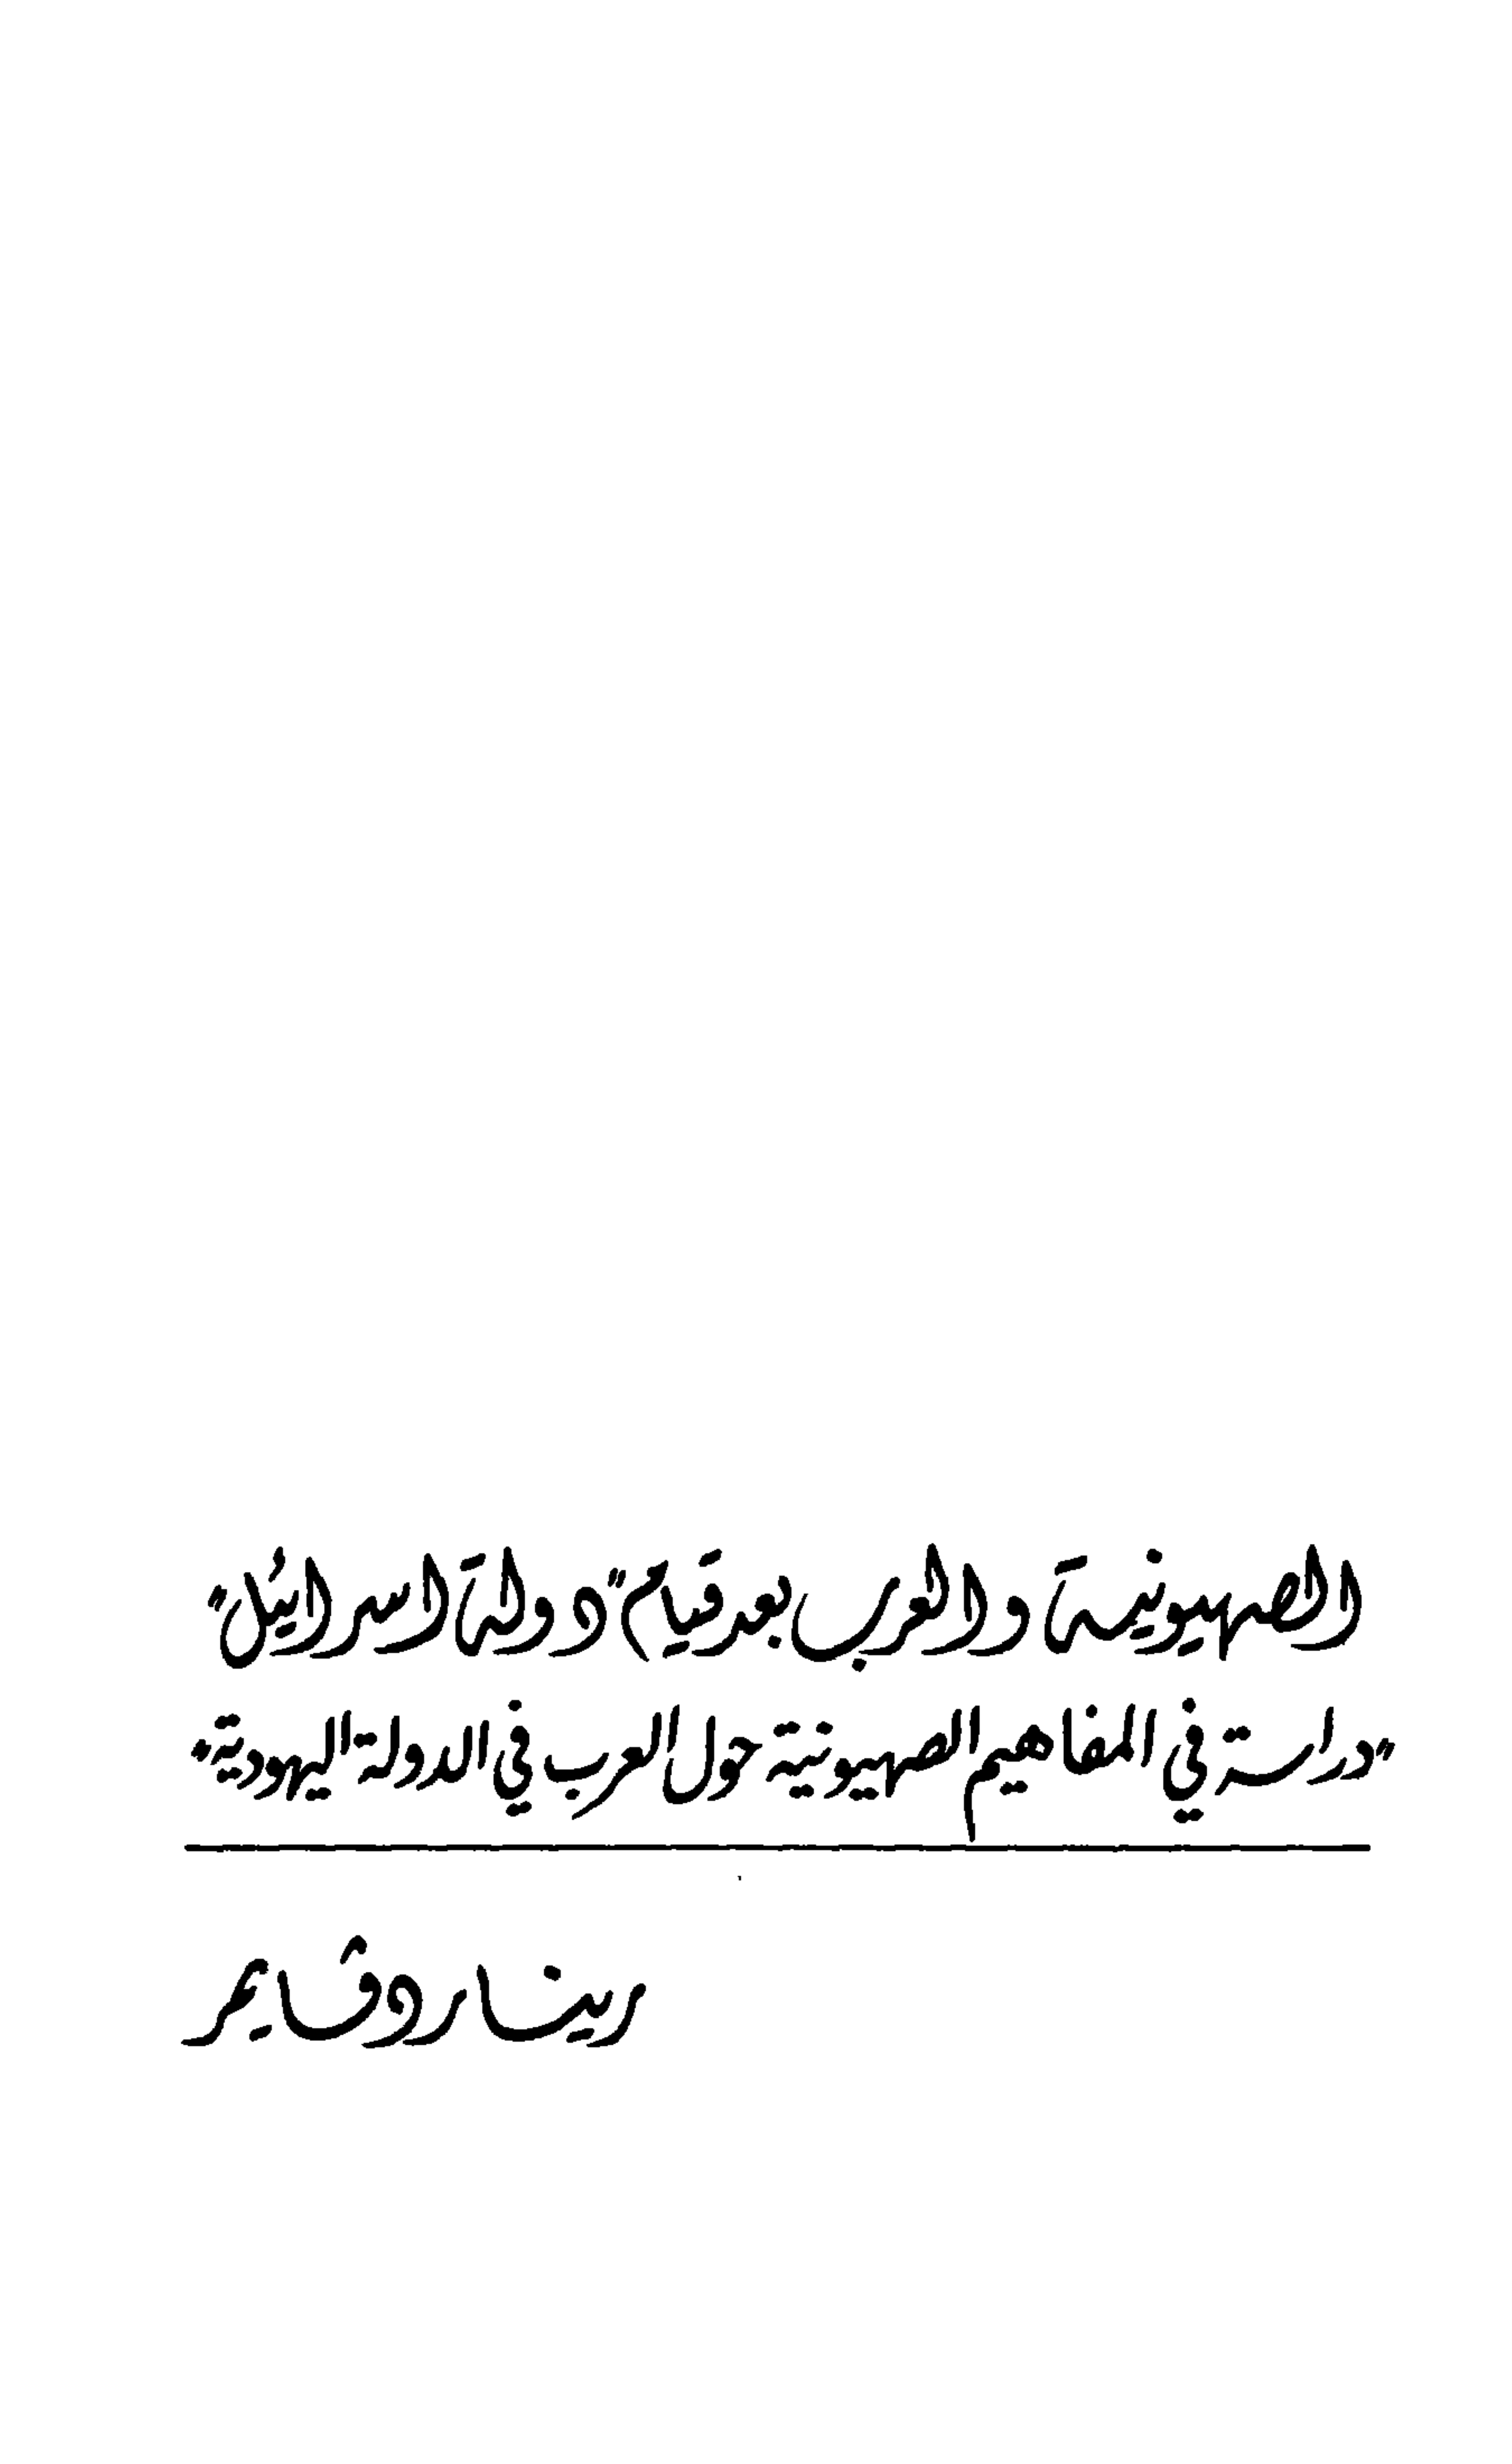 الصهيونية والعرب بعد قيام "دولة اسرائيل"
"دراسة في المفاهيم الصهيونية حول العرب في الدولة اليهودية"
رينارد وقايمر